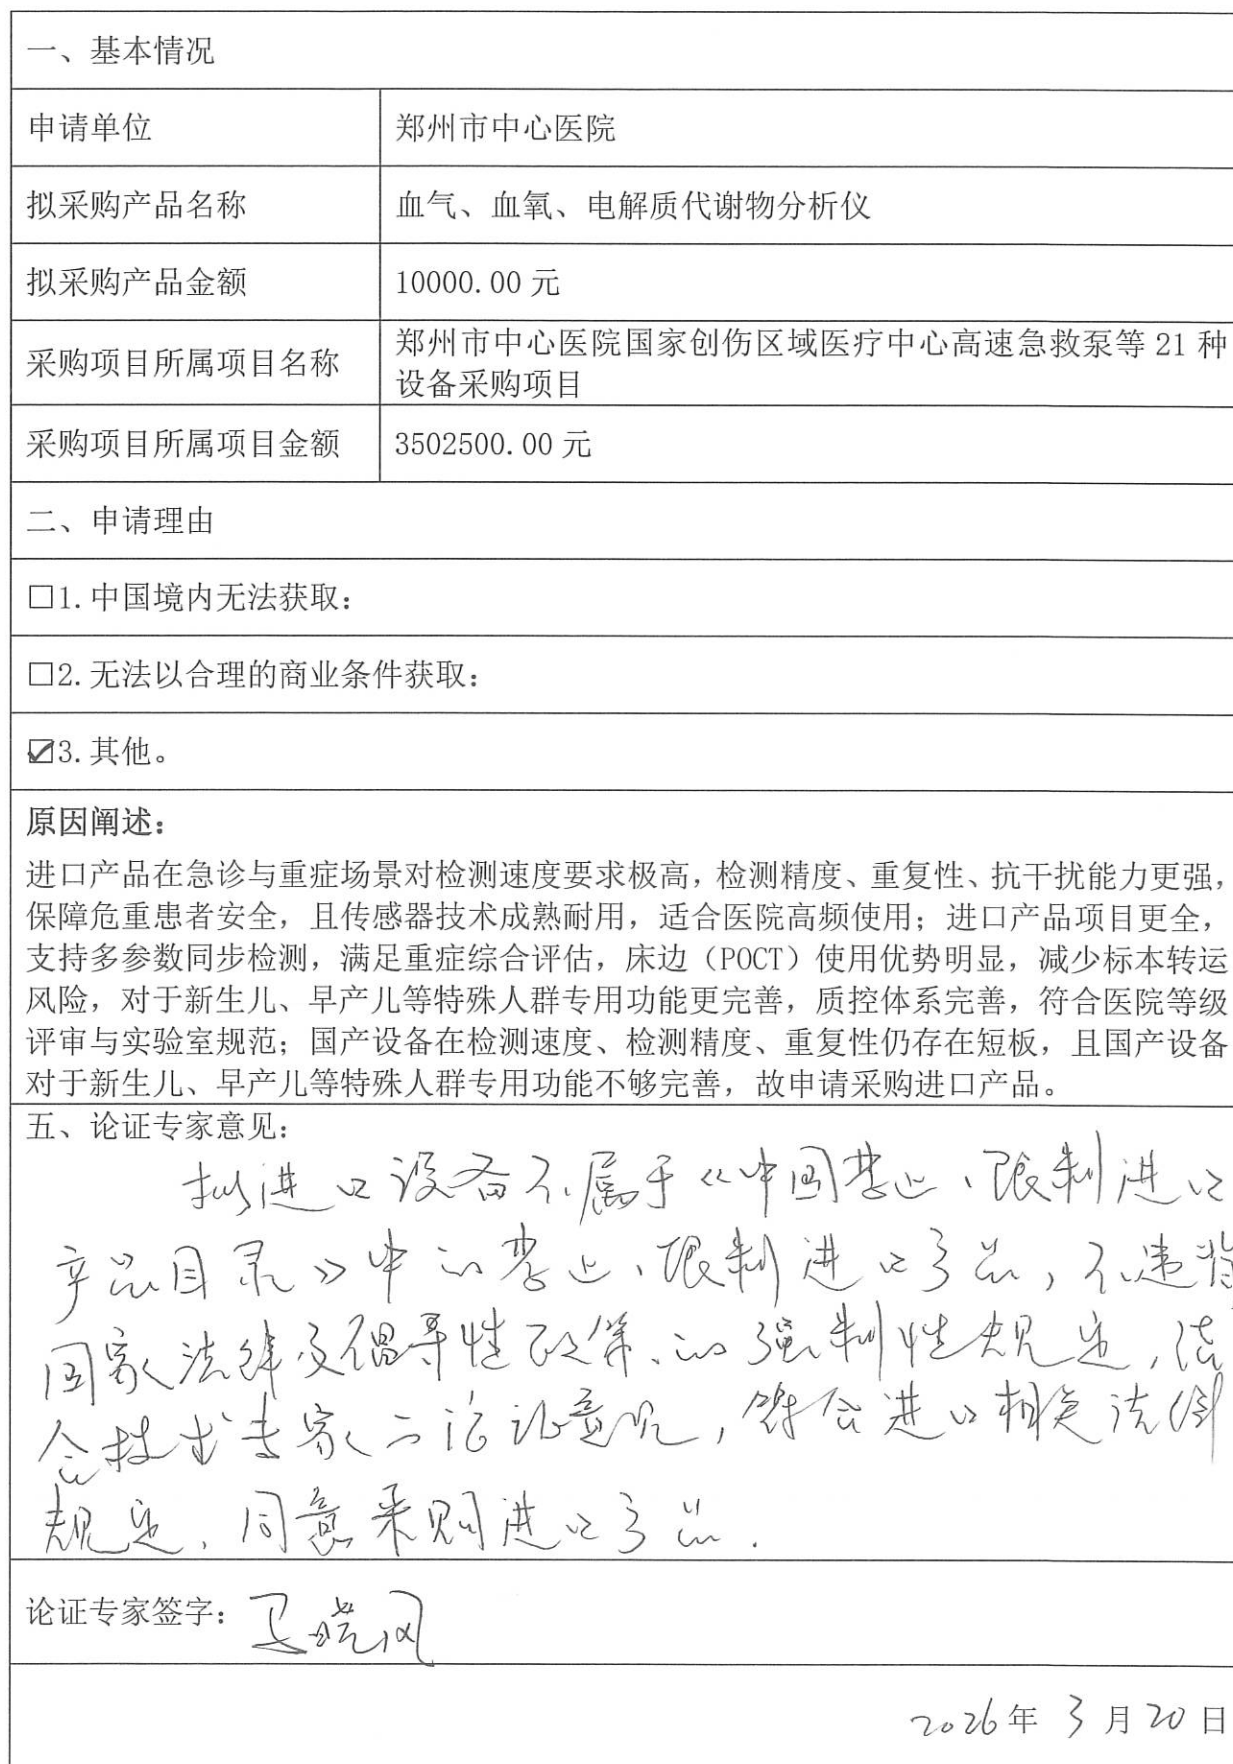 一、基本情况
申请单位 郑州市中心医院
拟采购产品名称 血气、血氧、电解质代谢物分析仪
拟采购产品金额 10000.00 元
采购项目所属项目名称 郑州市中心医院国家创伤区域医疗中心高速急救泵等 21 种
设备采购项目
采购项目所属项目金额 3502500.00 元
二、申请理由
□1.中国境内无法获取：
□2.无法以合理的商业条件获取：
☑3.其他。
原因阐述：
进口产品在急诊与重症场景对检测速度要求极高，检测精度、重复性、抗干扰能力更强，
保障危重患者安全，且传感器技术成熟耐用，适合医院高频使用；进口产品项目更全，
支持多参数同步检测，满足重症综合评估，床边（POCT）使用优势明显，减少标本转运
风险，对于新生儿、早产儿等特殊人群专用功能更完善，质控体系完善，符合医院等级
评审与实验室规范；国产设备在检测速度、检测精度、重复性仍存在短板，且国产设备
对于新生儿、早产儿等特殊人群专用功能不够完善，故申请采购进口产品。
五、论证专家意见：
拟进口设备不属于《中国禁止、限制进口
产品目录》中的禁止、限制进口产品，不违背
国家法律及倡导性政策、的强制性规定，结
合技术专家的论证意见，符合进口相关法律
规定，同意采购进口产品.
论证专家签字：晓风
2026年 3 月 20 日